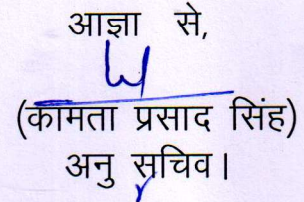 आज्ञा से,
(कामता प्रसाद सिंह)
अनु सचिव।